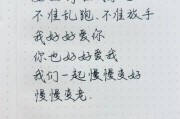 不准乱跑、不准放手
我好好爱你
你也好好爱我
我们一起慢慢变好
慢慢变老.